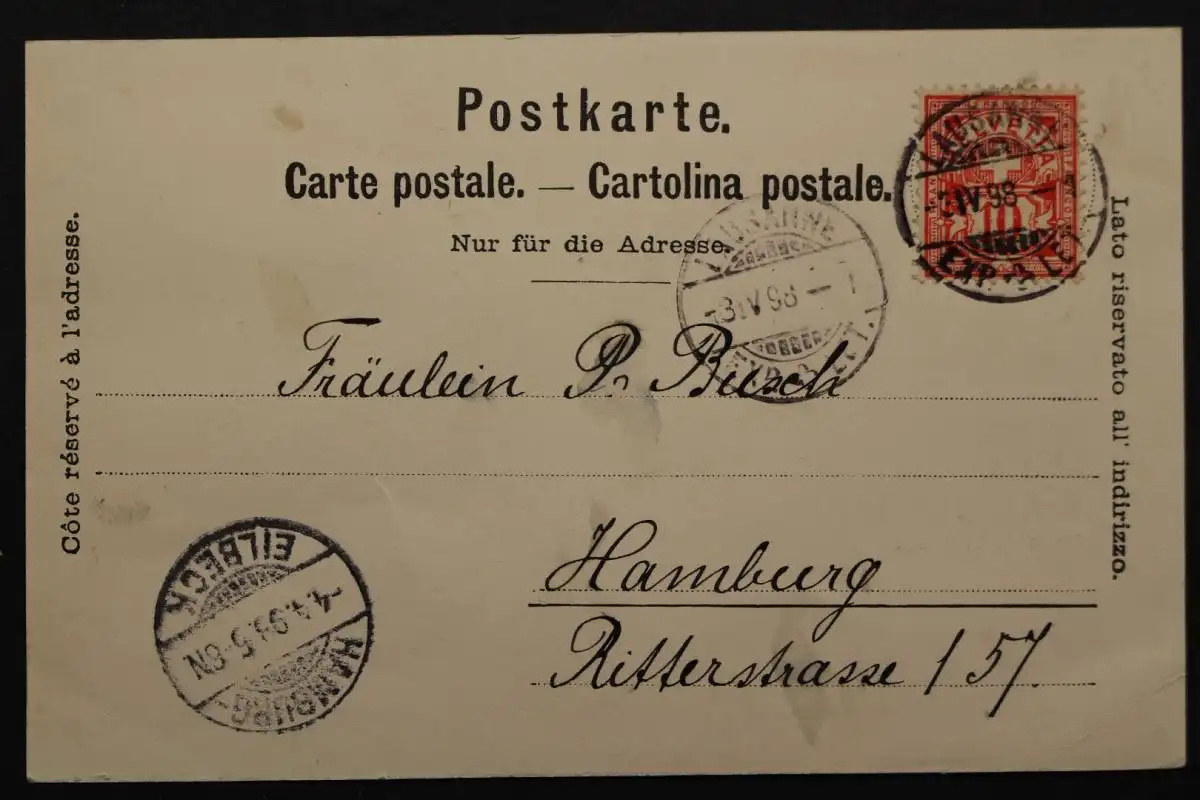 Postkarte.
Carte postale. — Cartolina postale.
Nur für die Adresse.
Côte réservé à l'adresse.
Lato riservato all' indirizzo.
10
IV 98
LAUSANNE
3 IV 98 – 7
Fräulein P. Busch
Hamburg
Ritterstrasse 157.
HAMBURG-
EILBECK